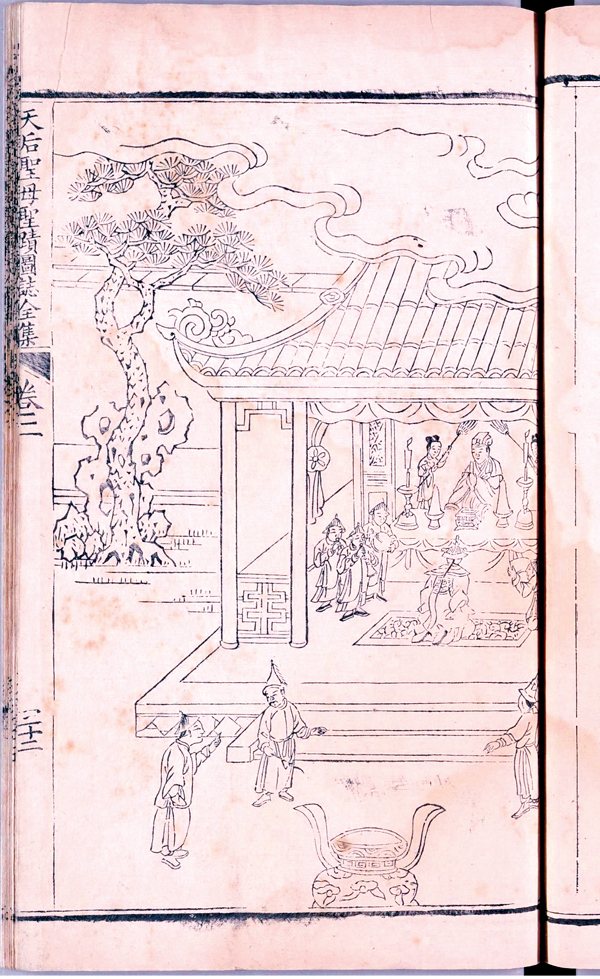 天后聖母聖蹟圖誌全集
卷二